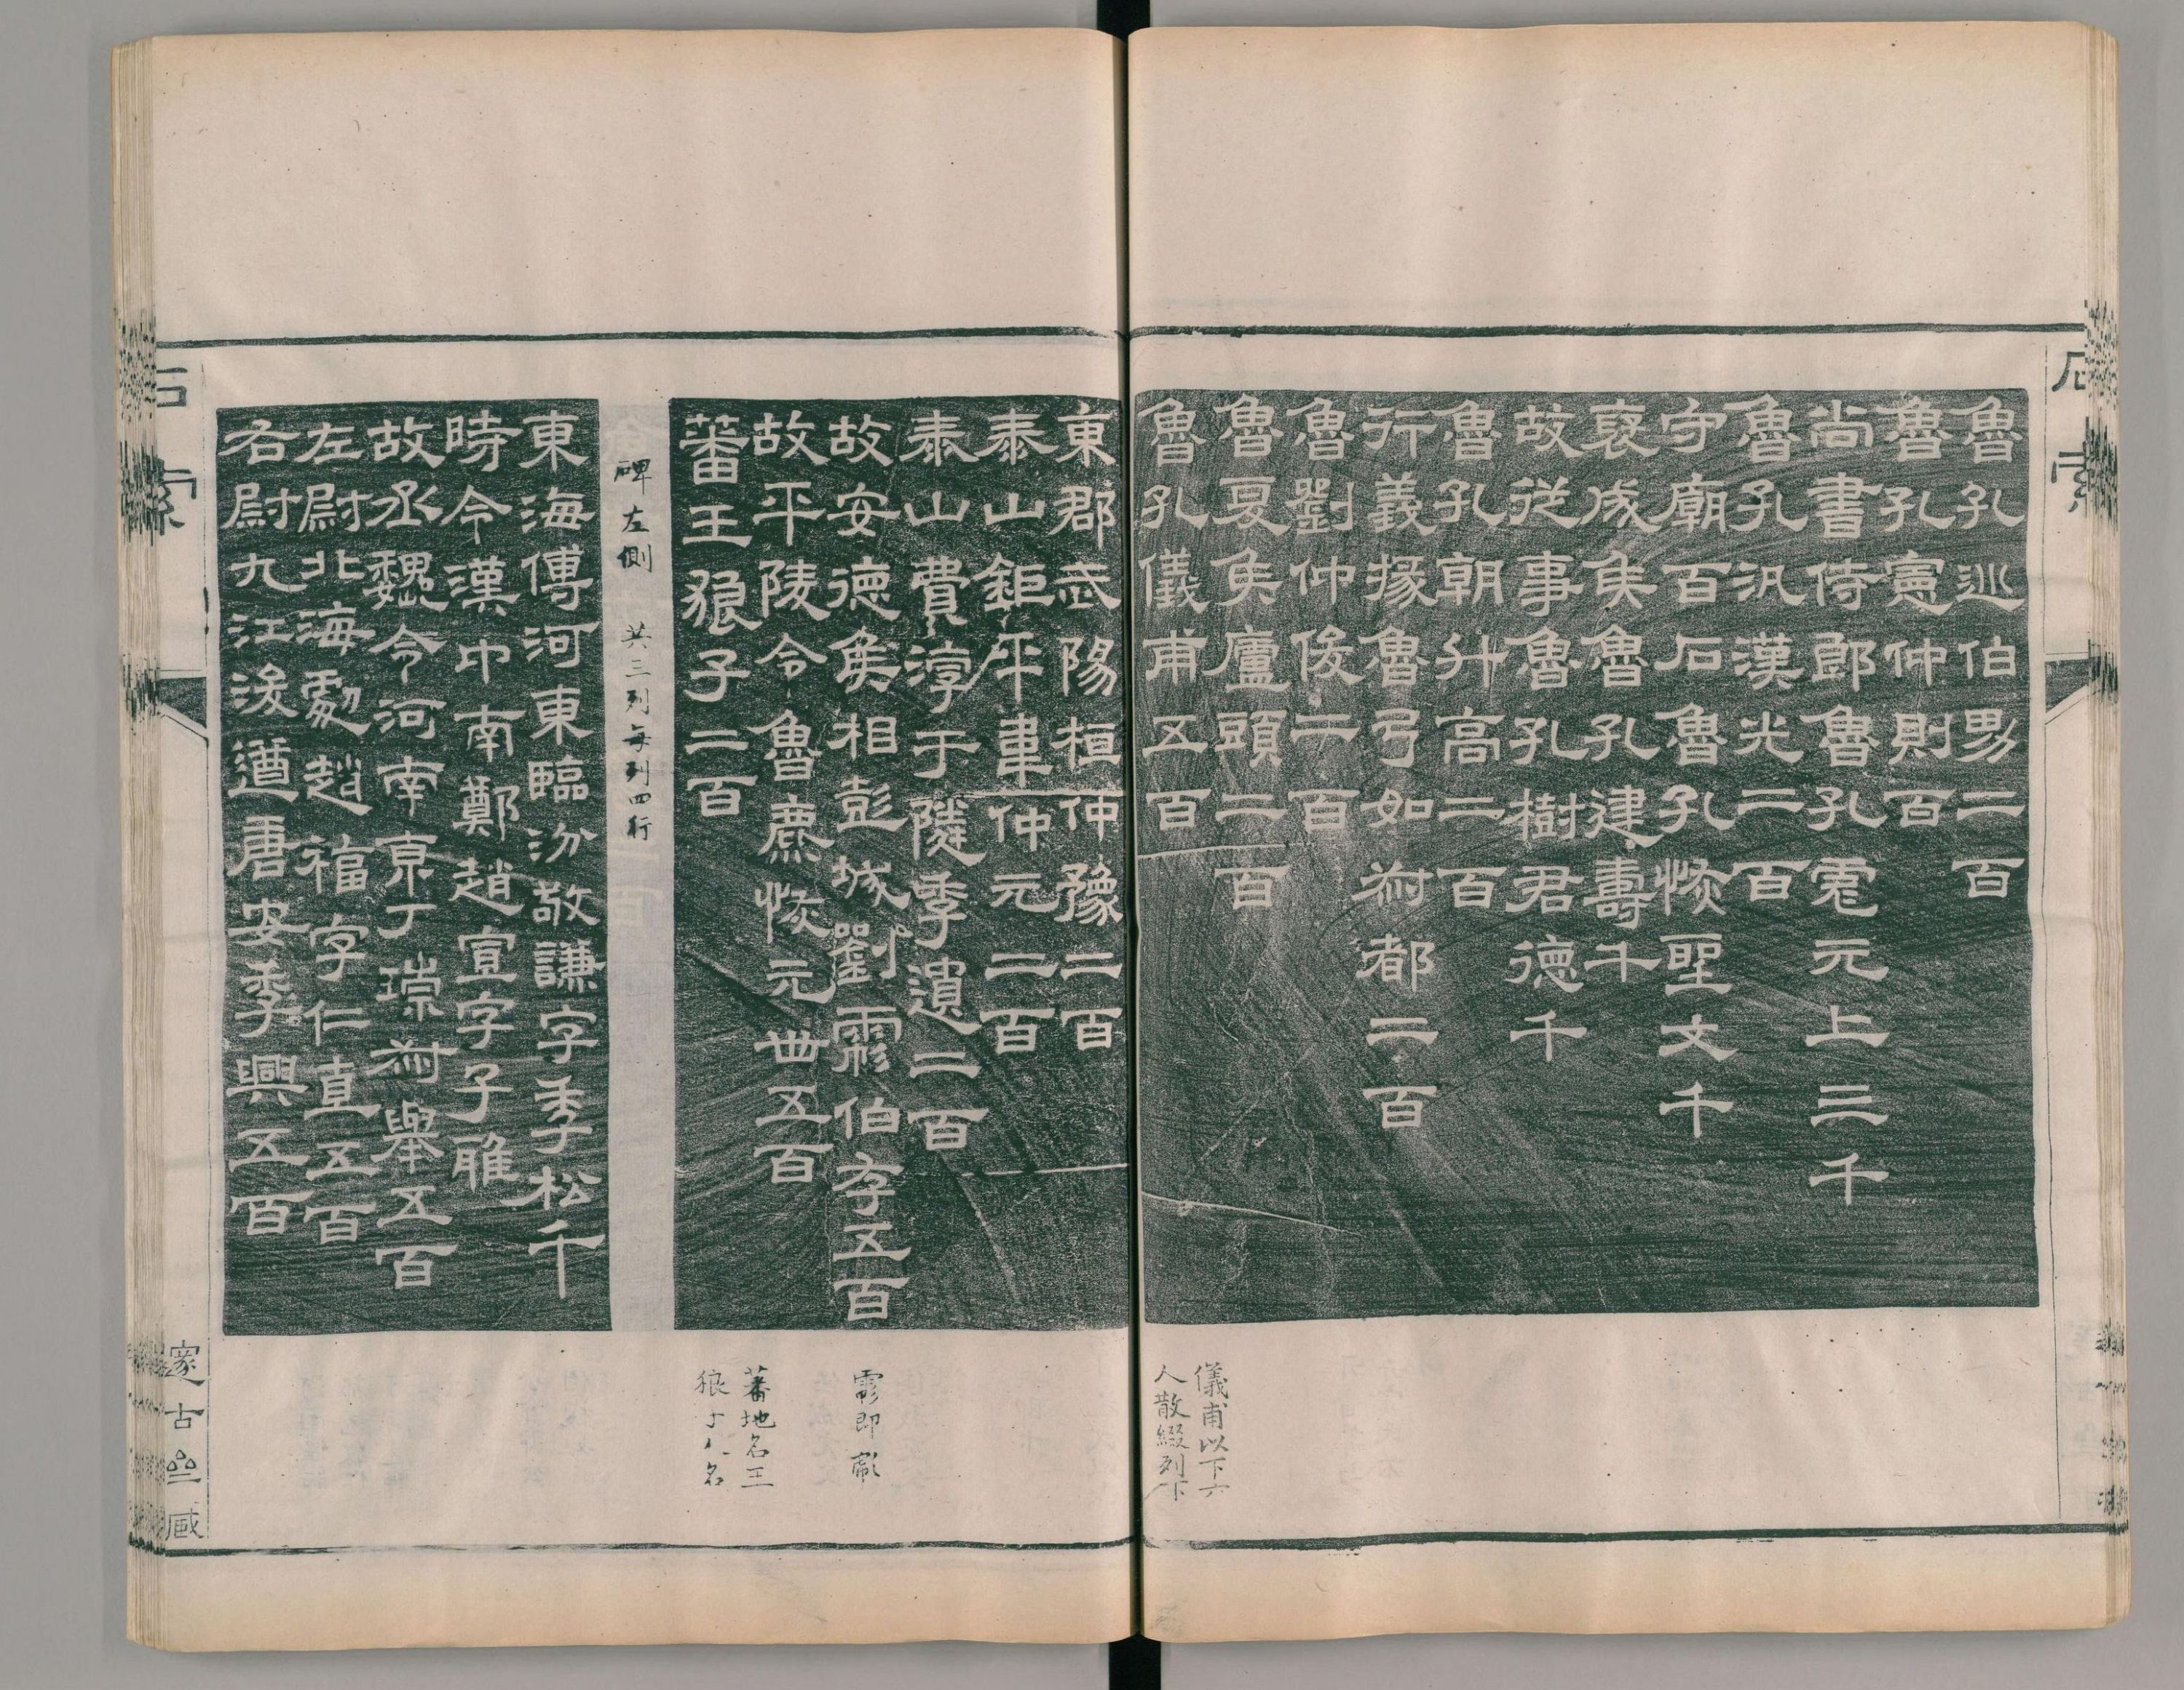 石索
魯孔巡伯男二百
魯孔憲仲則百
尚書侍郎魯孔彪元上三千
魯孔汎漢光二百
守廟百石魯孔恢聖文千
褒成矦魯孔建壽千
故從事魯孔樹君德千
魯孔朝升高二百
行義掾魯弓如叔都二百
魯劉仲俊二百
魯夏矦廬頭二百
魯孔儀甫五百
儀甫以下六
人散綴列下
東郡武陽桓仲豫二百
泰山鉅平韋仲元二百
泰山費淳于隣季遺二百
故安德矦相彭城劉彪伯存五百
故平陵令魯麃恢元世五百
蕃王狼子二百
蕃地名王
狼子人名
碑左側 共三列每列四行
東海傅河東臨汾敬謙字季松千
時令漢中南鄭趙宣字子雅
故丞魏令河南京丁㻽叔舉五百
左尉北海劇趙福字仁直五百
右尉九江浚遒唐安季興五百
石索
邃古